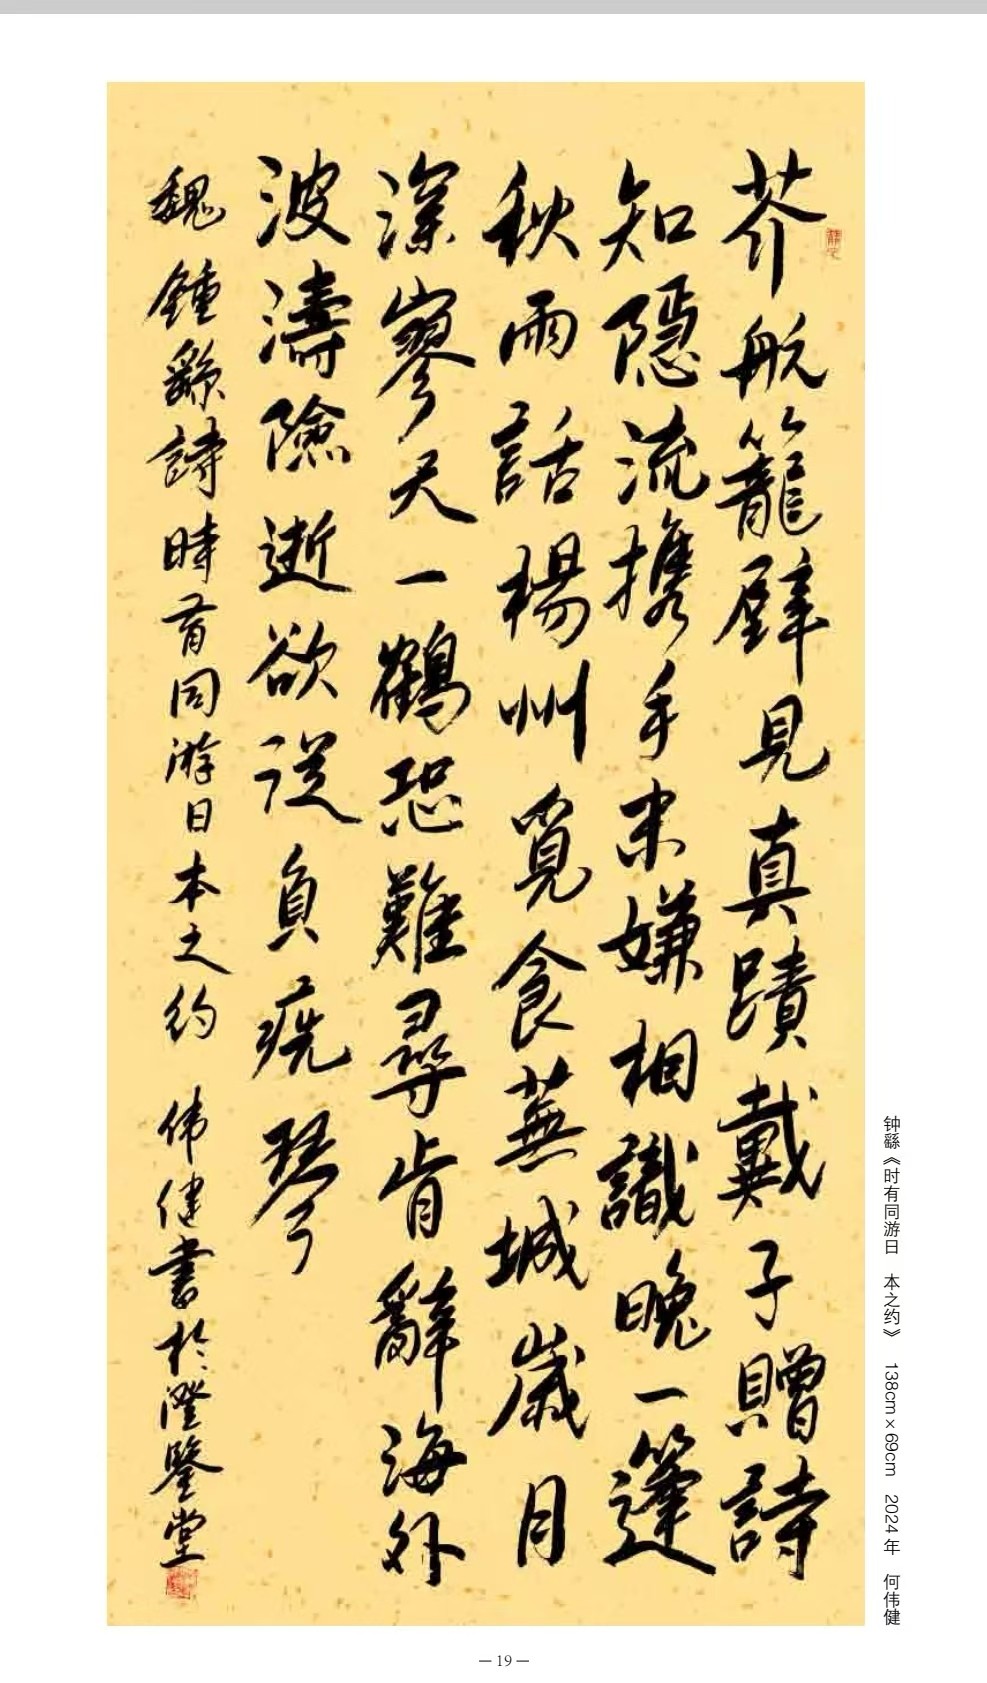 芥航籠壁見真蹟戴子贈詩
知隱流携手未嫌相識晚一篷
秋雨話楊州覓食蕪城歲月
深寥天一鶴恐難尋肯辭海外
波濤險逝欲從負疣琴
魏鍾繇詩時有同游日本之約 伟健書於澄鑒堂
钟繇《时有同游日 本之约》 138cm×69cm 2024年 何伟健
— 19 —